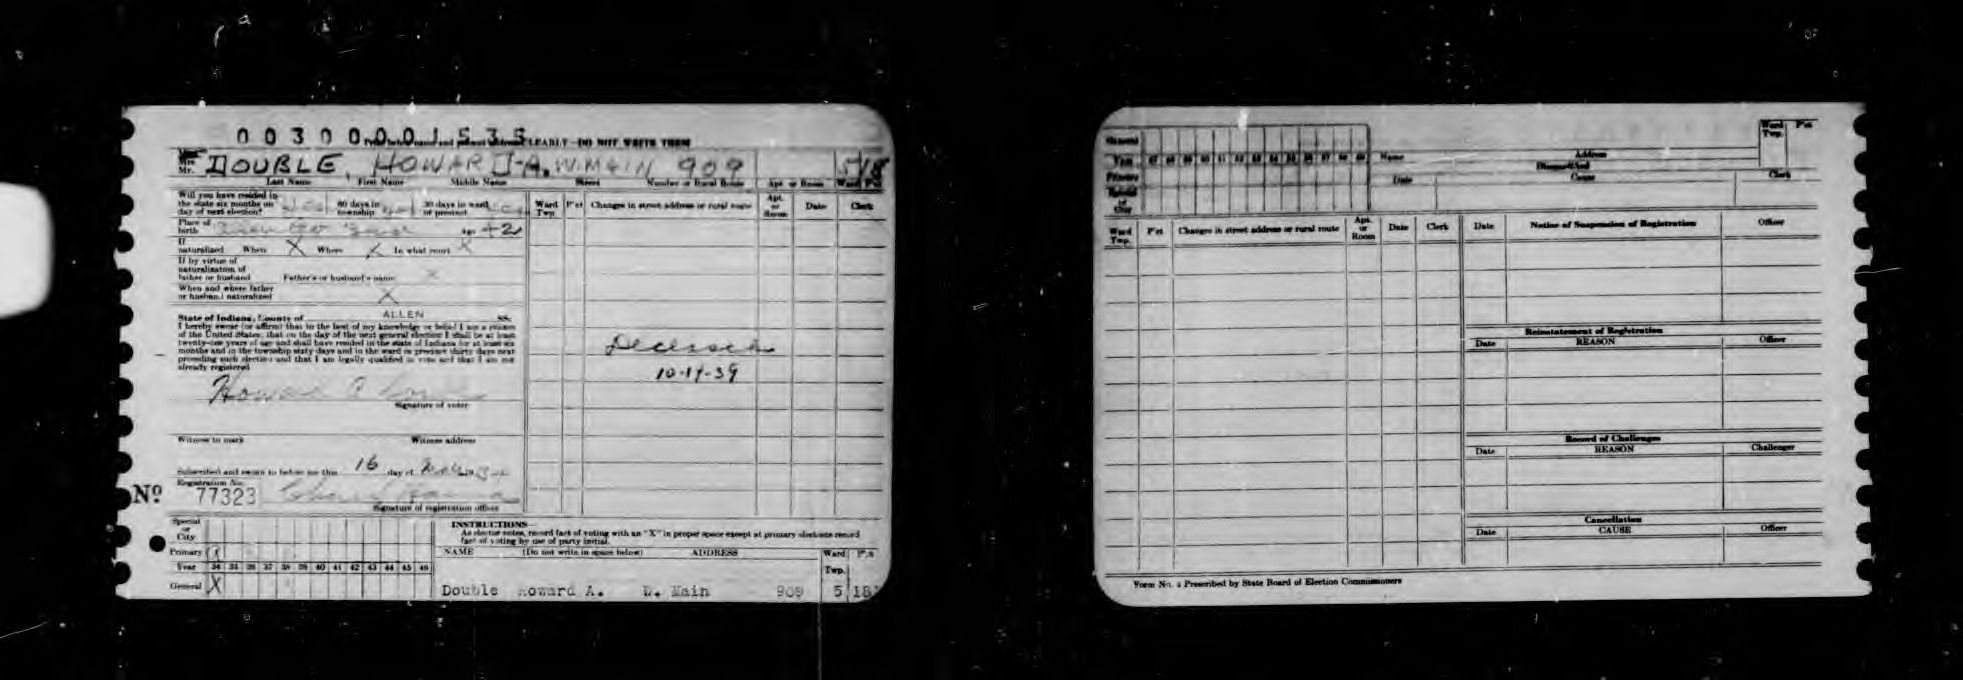 00300001535
Print below name and present address CLEARLY—DO NOT WRITE THEM
Mrs.
Mr. DOUBLE, HOWARD-A. W. MAIN 909 5 18
Last Name First Name Middle Name Street Number or Rural Route Apt. or Room Ward Pct
Will you have resided in
the state six months on
day of next election? 60 days in
township 30 days in ward
or precinct
Place of
birth Age 42
If
naturalized When X Where X In what court X
If by virtue of
naturalization of
father or husband Father's or husband's name X
When and where father
or husband naturalized X
State of Indiana, County of ALLEN SS.
I hereby swear (or affirm) that to the best of my knowledge or belief I am a citizen
of the United States; that on the day of the next general election I shall be at least
twenty-one years of age and shall have resided in the state of Indiana for at least six
months and in the township sixty days and in the ward or precinct thirty days next
preceding such election and that I am legally qualified to vote and that I am not
already registered
Howard A
Signature of voter
Witness to mark Witness address
Subscribed and sworn to before me this 16 day of
Registration No.
No 77323
Signature of registration officer
Ward
Twp. P'ct Changes in street address or rural route Apt.
or
Room Date Clerk
Deceased
10-17-39
Special
or
City
Primary
Year 34 35 36 37 38 39 40 41 42 43 44 45 46
General X
INSTRUCTIONS—
As elector votes, record fact of voting with an "X" in proper space except at primary elections record
fact of voting by use of party initial.
NAME (Do not write in space below) ADDRESS Ward
Twp. P'ct
Double Howard A. W. Main 909 5 18
General
Year 47 48 49 50 51 52 53 54 55 56 57 58 59
Primary
Special
or
City
Name Address
Disqualified
Date Cause Clerk
Ward
Twp. P'ct
Ward
Twp. P'ct Changes in street address or rural route Apt.
or
Room Date Clerk
Date Notice of Suspension of Registration Officer
Reinstatement of Registration
Date REASON Officer
Record of Challenges
Date REASON Challenger
Cancellation
Date CAUSE Officer
Form No. 4 Prescribed by State Board of Election Commissioners